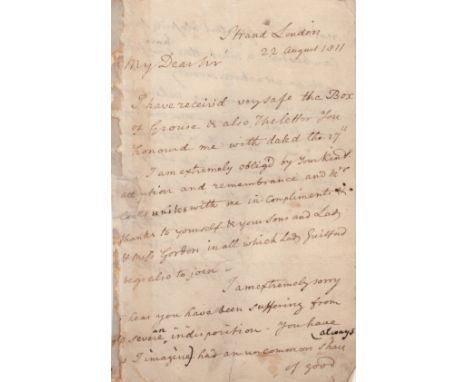 Strand London
22 August 1811
My Dear Sir
I have receiv'd very safe the Box
of Grouse & also The letter You
Honourd me with dated the 17th
I am extremely oblig'd by Your kind
attention and remembrance and Mrs
Coutts unites with me in compliments &
thanks to yourself & your Sons and Lady
& Miss Gordon in all which Lady Guilford
begs also to join -
I am extremely sorry
hear you have been suffering from
severe an indisposition - You have
I imagine) always had an uncommon share
of good